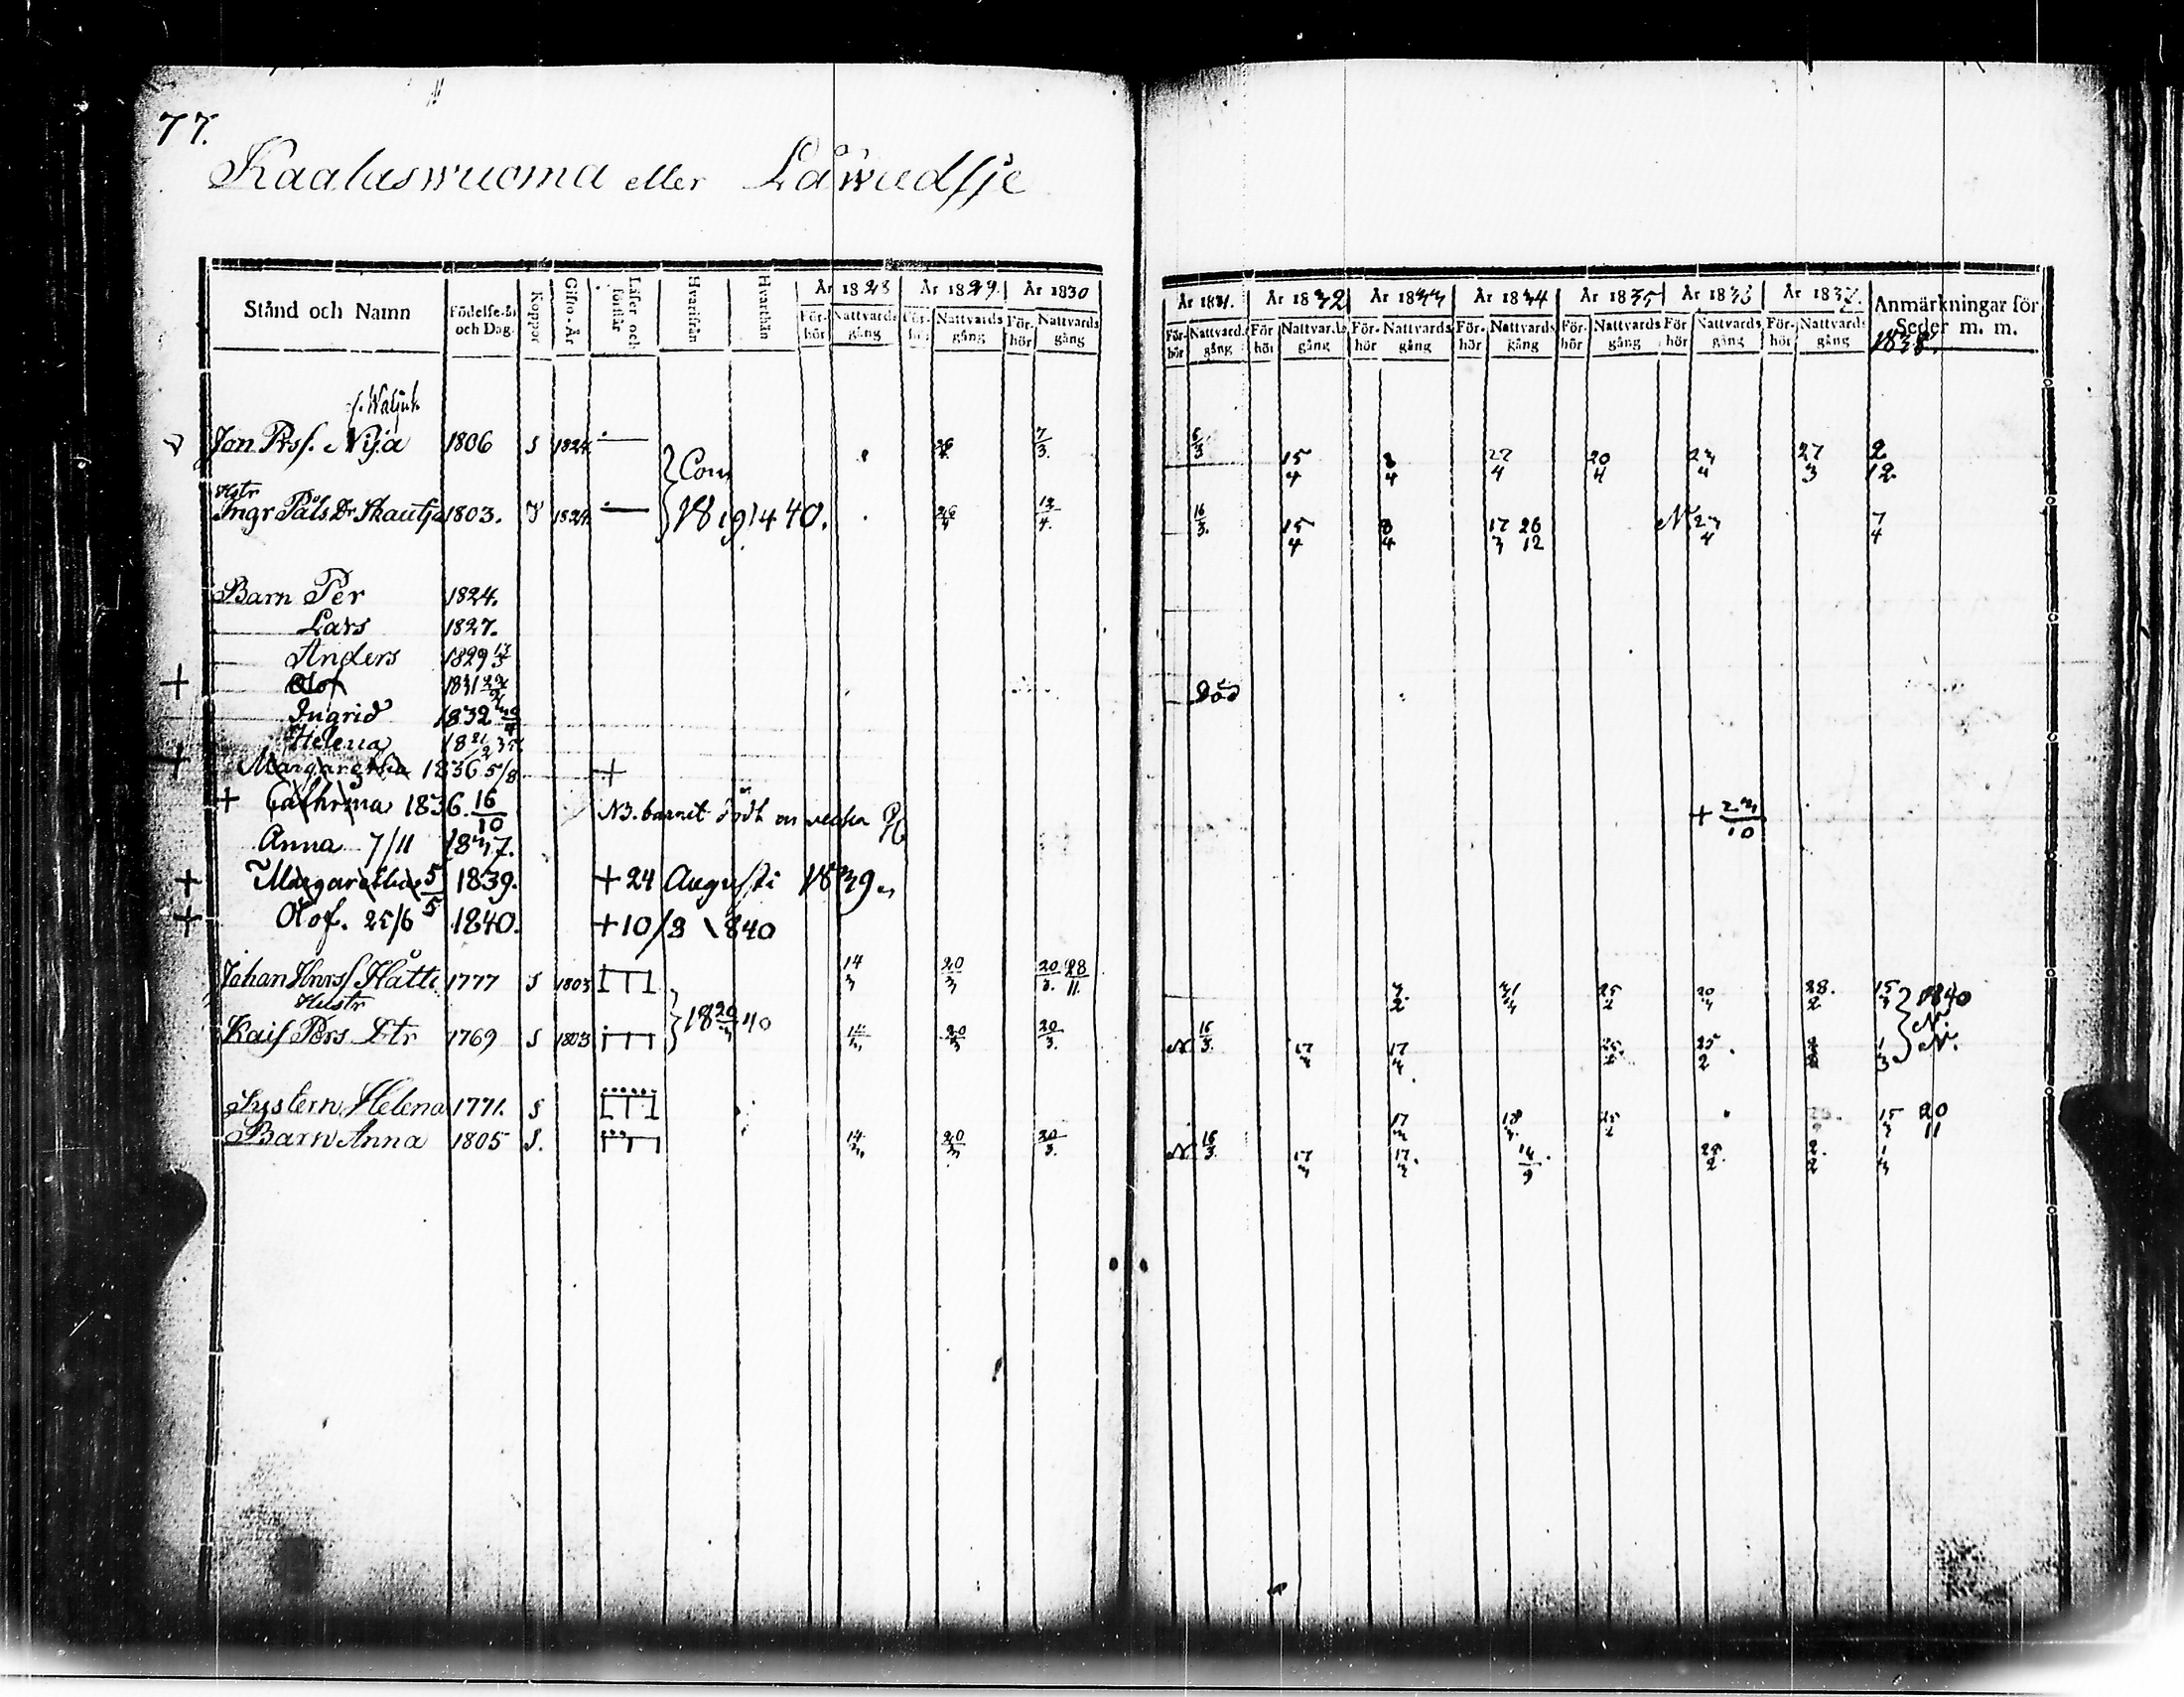 77.
Kaalaswuoma eller Låwudsje
Stånd och Namn Födelse-år och Dag. Koppor Gifto-År Läser och förstår Hvarifrån Hvarthän År 1828 År 1829. År 1830 År 1831. År 1832 År 1833 År 1834 År 1835 År 1836 År 1837. Anmärkningar för Seder m. m.
För-hör Nattvards gång För-hör Nattvards gång För-hör Nattvards gång För-hör Nattvards gång För-hör Nattvards gång För-hör Nattvards gång För-hör Nattvards gång För-hör Nattvards gång För-hör Nattvards gång För-hör Nattvards gång 1838.
Jon Prss. Nija 1806 S 1824. 7/3. 6/3 15/4 22/4 20/4 23/4 27/3 2/12.
Com
Hstr
Ingr Påls Dr Skautja 1803. 1824. 18 19/4 40. 16/3. 15/4 8/4 17/3 26/12 N 23/4 7/4
Barn Per 1824.
Lars 1827.
Anders 1829
+ Olof 1831 Död
Ingrid 1832
Helena 18 21/2 35
+ Margaretha 1836 5/8 +
+ Cathrina 1836. 16/10 NB. barnet födt en vecka + 23/10
Anna 7/11 1837.
+ Margaretha 5/5 1839. +24 Augusti 1839.
+ Olof. 25/6 1840. +10/8 1840
Johan Hnrss Håtti 1777 S 1803 14/3 20/3 20/3. 28/11. 3/2. 31/3 25/2 20/3 28./2 15/3 1840
Hustr
Kais Pers Dtr 1769 S 1803 18 29/3 40 14/3 20/3 20/3. N 16/3. 17/3 17/3 25/2 25/2 1/3 N.
Systern Helena 1771. S 17/3 18/3. 25/2 15/3 20/11
Barn Anna 1805 S. 14/3 20/3 20/3. N 16/3. 17/3 17/3. 14/9 25/2. 2/2 1/3